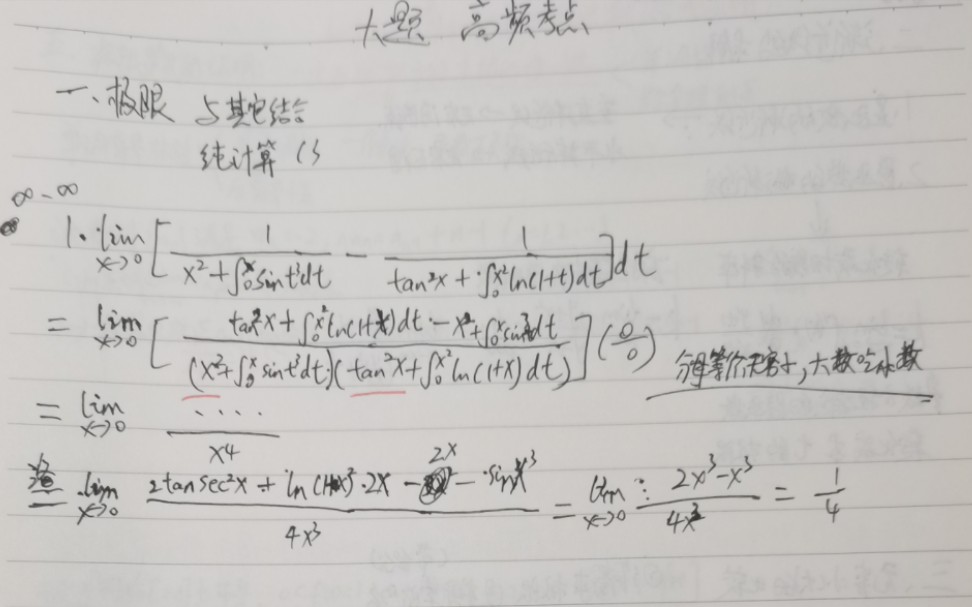 大题 高频考点
一、极限 与其它结合
纯计算 (3
∞-∞
1. lim x→0 [ 1/(x²+∫₀ˣsint³dt) - 1/(tan²x+∫₀^x² ln(1+t)dt) ]dt
= lim x→0 [ (tan²x+∫₀^x² ln(1+x)dt - x²+∫₀ˣsint³dt)/((x²+∫₀ˣsint³dt)(tan²x+∫₀^x² ln(1+x)dt)) ] (0/0) 分母等价无穷小,大数吃小数
= lim x→0 ..../x4
洛 = lim x→0 (2tansec²x + ln(1+x)²·2x - 2x - sinx³)/4x³ = lim x→0 (2x³-x³)/4x³ = 1/4